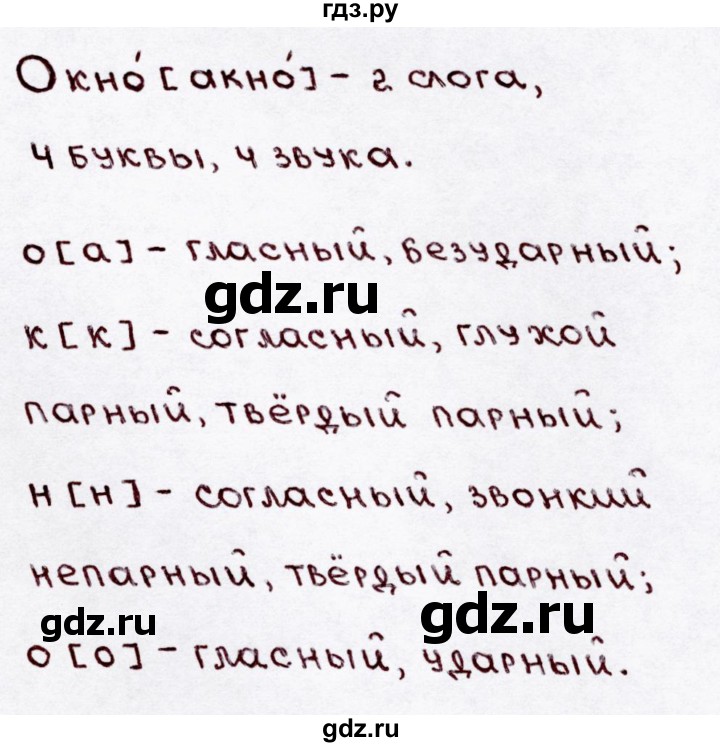 гдз.ру
Окно́ [акно́] - 2 слога,
4 буквы, 4 звука.
о [а] - гласный, безударный;
gdz.ru
к [к] - согласный, глухой
парный, твёрдый парный;
н [н] - согласный, звонкий
непарный, твёрдый парный;
gdz.ru gdz.ru
о [о] - гласный, ударный.
gdz.ru